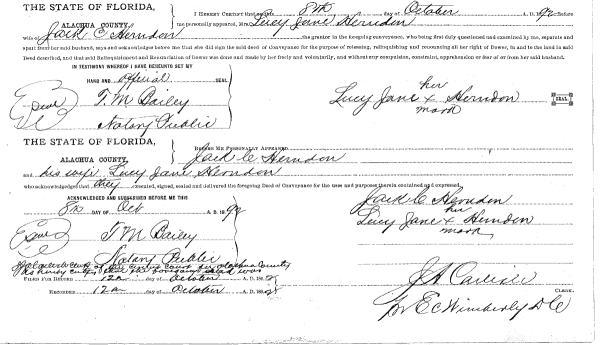 THE STATE OF FLORIDA,
ALACHUA COUNTY.
I HEREBY CERTIFY that on this 8th day of October 92 before
me personally appeared, Mrs. Lucy Jane Herndon
wife of Jack C Herndon the grantor in the foregoing conveyance, who being first duly questioned and examined by me, separate and
apart from her said husband, says and acknowledges before me that she did sign the said deed of Conveyance for the purpose of releasing, relinquishing and renouncing all her right of Dower, in and to the land in said
Deed described, and that said Relinquishment and Renunciation of Dower was done and made by her freely and voluntarily, and without any compulsion, constraint, apprehension or fear of or from her said husband.
IN TESTIMONY WHEREOF I HAVE HEREUNTO SET MY
HAND AND official SEAL
Seal
T. M Bailey
Notary Public
her
Lucy Jane x Herndon
mark
SEAL
THE STATE OF FLORIDA,
ALACHUA COUNTY,
BEFORE ME PERSONALLY APPEARED
Jack C Herndon
and his wife Lucy Jane Herndon
who acknowledged that they executed, signed, sealed and delivered the foregoing Deed of Conveyance for the uses and purposes therein contained and expressed.
ACKNOWLEDGED AND SUBSCRIBED BEFORE ME THIS
8th DAY OF Oct A. D. 1892
Seal
T. M Bailey
Notary Public
Jack C Herndon
her
Lucy Jane x Herndon
mark
Clerk of the Circuit Court for Alachua County
do hereby certify that the foregoing deed was
FILED FOR RECORD 12th day of October A. D. 1892
RECORDED 12th day of October A. D. 1892
J A Carlisle
CLERK.
Pr E C Wimberly D C